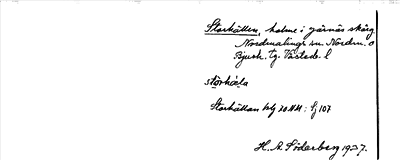 Storhällan, holme i Järnäs skärg
Nordmalings sn. Nordm. o
Bjurh. tg. Västerb. l
storhɑla
Storhällan blg 20 NM: Sj 107
H. A. Söderberg 1937.